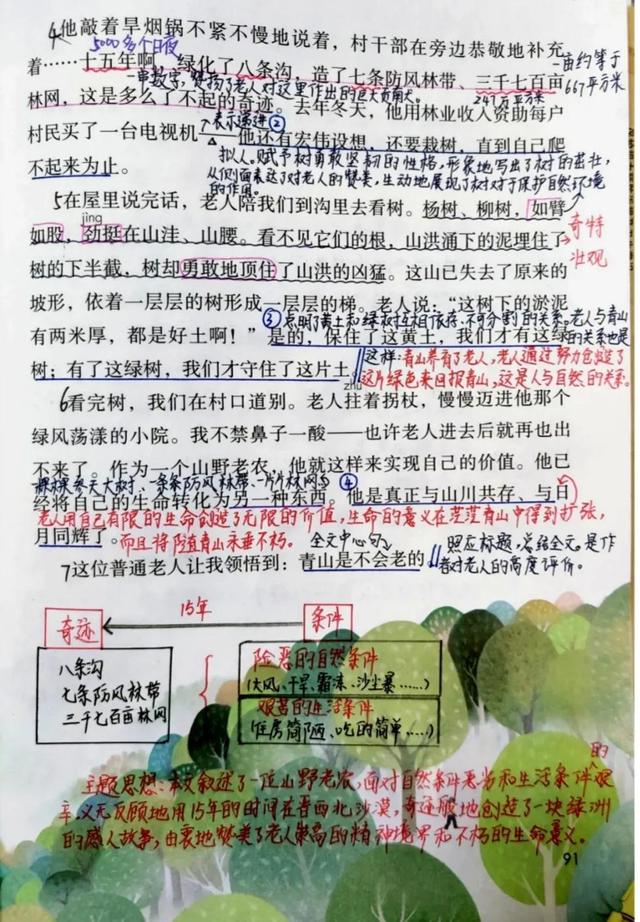 4他敲着旱烟锅不紧不慢地说着，村干部在旁边恭敬地补充
5000多个日夜
着……十五年啊，绿化了八条沟，造了七条防风林带、三千七百亩
一亩约等于
667平方米
一串数字，赞扬了老人对这里作出的巨大贡献。
247万平方米
林网，这是多么了不起的奇迹。去年冬天，他用林业收入资助每户
表示递进②
村民买了一台电视机——他还有宏伟设想，还要栽树，直到自己爬
不起来为止。
拟人。赋予树勇敢坚韧的性格，形象地写出了树的茁壮，
从侧面表达了对老人的赞美，生动地展现了树对于保护自然环境
的作用。
5在屋里说完话，老陪我们到沟里去看树。杨树、柳树，如臂
jìng
如股，劲挺在山洼、山腰。看不见它们的根，山洪涌下的泥埋住了
奇特
壮观
树的下半截，树却勇敢地顶住了山洪的凶猛。这山已失去了原来的
坡形，依着一层层的树形成一层层的梯。老人说：“这树下的淤泥
③点明了黄土和绿树互相依存、不可分割的关系。老人与青山
的关系也是
有两米厚，都是好土啊！”是的，保住了这黄土，我们才有这绿
这样：青山养育了老人，老人通过努力创造了
树；有了这绿树，我们才守住了这片土。
这片绿色来回报青山，这是人与自然的关系。
zhǔ
6看完树，我们在村口道别。老人拄着拐杖，慢慢迈进他那个
绿风荡漾的小院。我不禁鼻子一酸——也许老人进去后就再也出
不来了。作为一个山野老农，他就这样来实现自己的价值。他已
一棵棵参天大树、一条条防风林带、一片片林网 ④
经将自己的生命转化为另一种东西。他是真正与山川共存、与日
老人用自己有限的生命创造了无限的价值，生命的意义在茫茫青山中得到扩张，
月同辉了。而且将随青山永垂不朽。
全文中心句
照应标题，总结全文。是作
7这位普通老人让我领悟到：青山是不会老的。
者对老人的高度评价。
15年
奇迹
条件
八条沟
七条防风林带
三千七百亩林网
险恶的自然条件
（大风、干旱、霜冻、沙尘暴……）
艰苦的生活条件
（住房简陋、吃的简单……）
主题思想：本文叙述了一位山野老农，面对自然条件恶劣和生活条件的艰
辛，义无反顾地用15年的时间在晋西北沙漠，奇迹般地创造了一块绿洲
的感人故事，由衷地赞美了老人崇高的精神境界和不朽的生命意义。
91